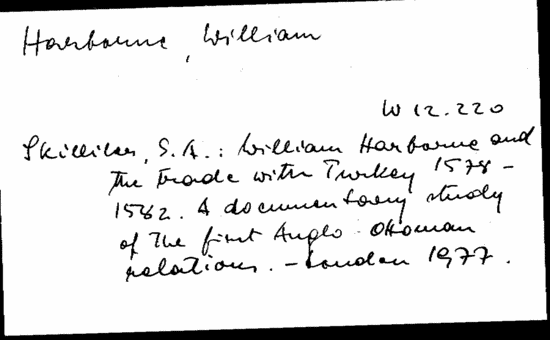 Harborne, William
W 12.220
Skilliter, S.A.: William Harborne and
the trade with Turkey 1578-
1582. A documentary study
of the first Anglo-Ottoman
relations. - London 1977.